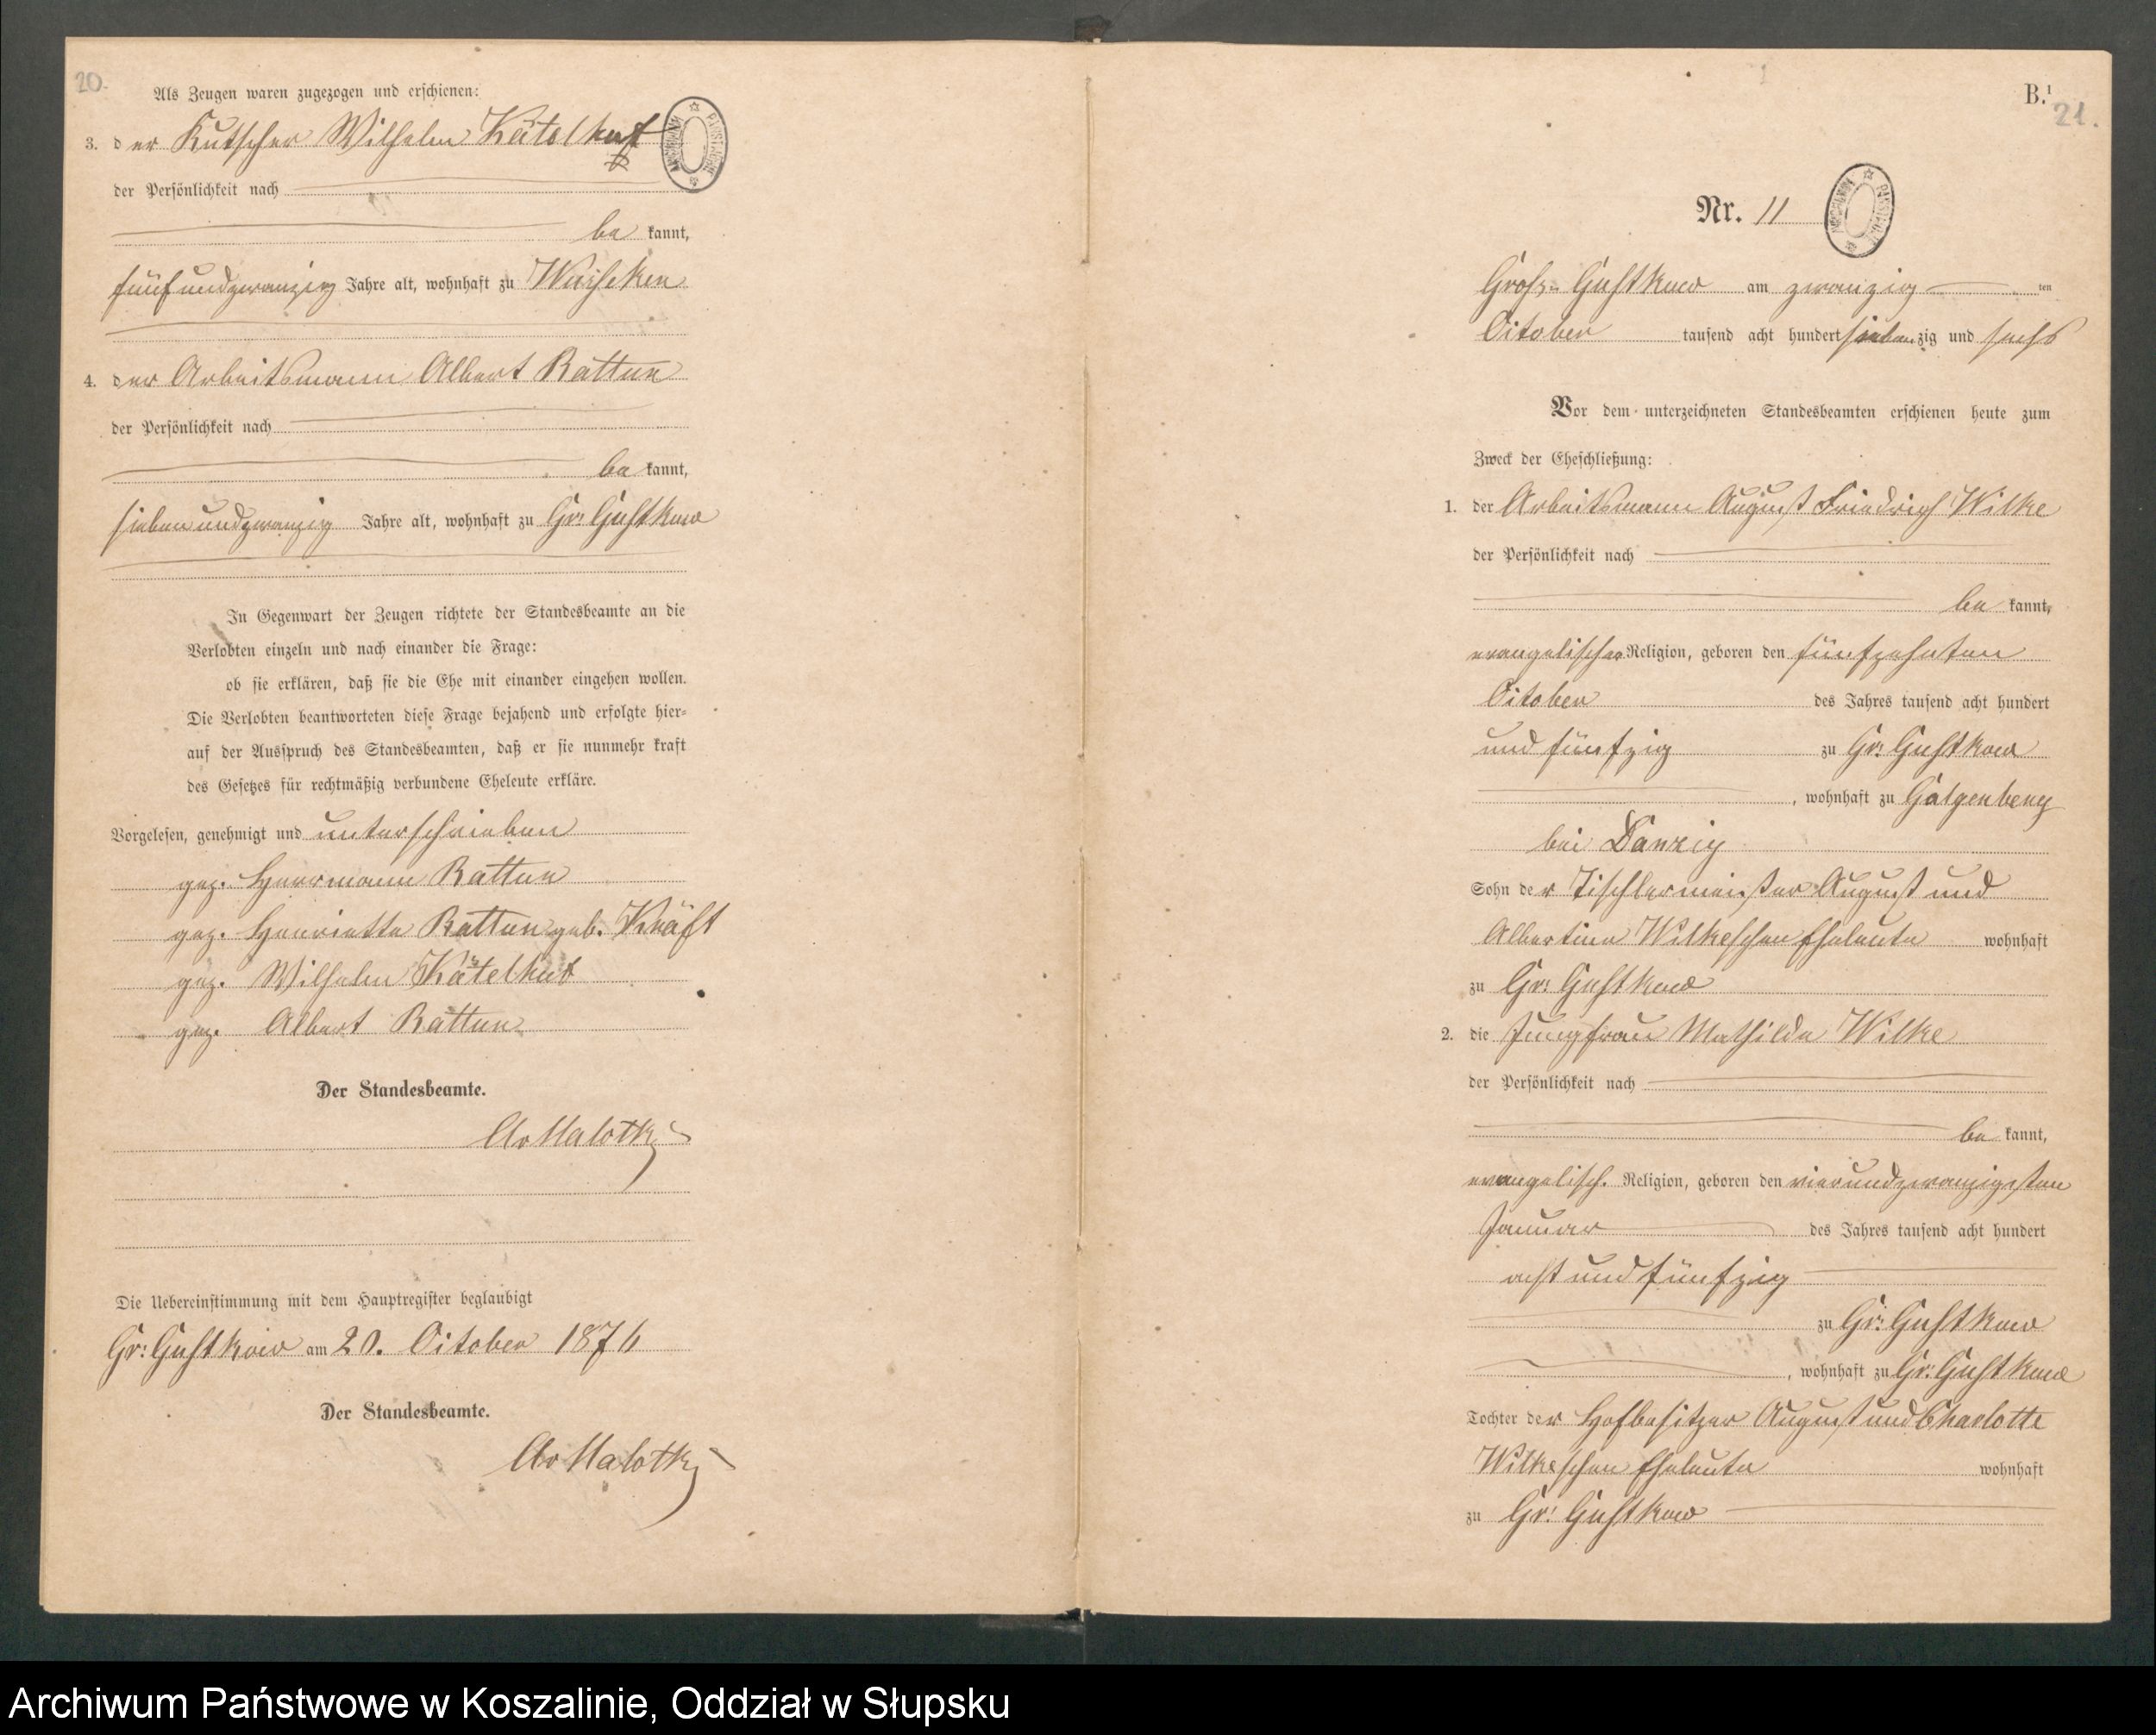 20.
Als Zeugen waren zugezogen und erschienen:
3. der Kutscher Wilhelm Kätelhut
der Persönlichkeit nach
be kannt,
fünfundzwanzig Jahre alt, wohnhaft zu
4. der Arbeitsmann Albert Rattun
der Persönlichkeit nach
be kannt,
siebenundzwanzig Jahre alt, wohnhaft zu Gr: Gustkow
In Gegenwart der Zeugen richtete der Standesbeamte an die
Verlobten einzeln und nach einander die Frage:
ob sie erklären, daß sie die Ehe mit einander eingehen wollen.
Die Verlobten beantworteten diese Frage bejahend und erfolgte hier-
auf der Ausspruch des Standesbeamten, daß er sie nunmehr kraft
des Gesetzes für rechtmäßig verbundene Eheleute erkläre.
Vorgelesen, genehmigt und unterschrieben
gez. Herrmann Rattun
gez. Henriette Rattun geb. Kräft
gez. Wilhelm Kätelhut
gez. Albert Rattun
Der Standesbeamte.
Die Uebereinstimmung mit dem Hauptregister beglaubigt
Gr: Gustkow am 20. October 1876
Der Standesbeamte.
B.
21.
Nr. 11
Groß- Gustkow am zwanzig ten
October tausend acht hundert siebenzig und sechs
Vor dem unterzeichneten Standesbeamten erschienen heute zum
Zweck der Eheschließung:
1. der Arbeitsmann August Friedrich Wilke
der Persönlichkeit nach
be kannt,
evangelischer Religion, geboren den fünfzehnten
October des Jahres tausend acht hundert
und fünfzig zu Gr: Gustkow
, wohnhaft zu Galgenberg
bei Danzig
Sohn der Tischlermeister August und
Albertine Wilkeschen Eheleute wohnhaft
zu Gr: Gustkow
2. die Jungfrau Mathilde Wilke
der Persönlichkeit nach
be kannt,
evangelisch. Religion, geboren den vierundzwanzigsten
Januar des Jahres tausend acht hundert
acht und fünfzig
zu Gr: Gustkow
, wohnhaft zu Gr: Gustkow
Tochter der Hofbesitzer August und Charlotte
Wilkeschen Eheleute wohnhaft
zu Gr: Gustkow
Archiwum Państwowe w Koszalinie, Oddział w Słupsku